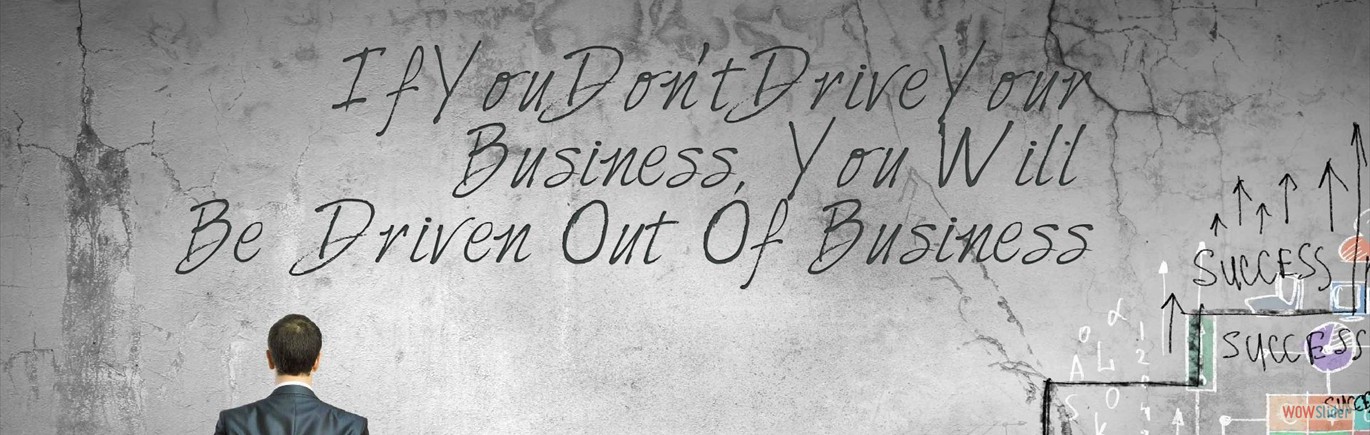 If You Don't Drive Your
Business, You Will
Be Driven Out Of Business
SUCCESS
SUCCESS
WOWSlider